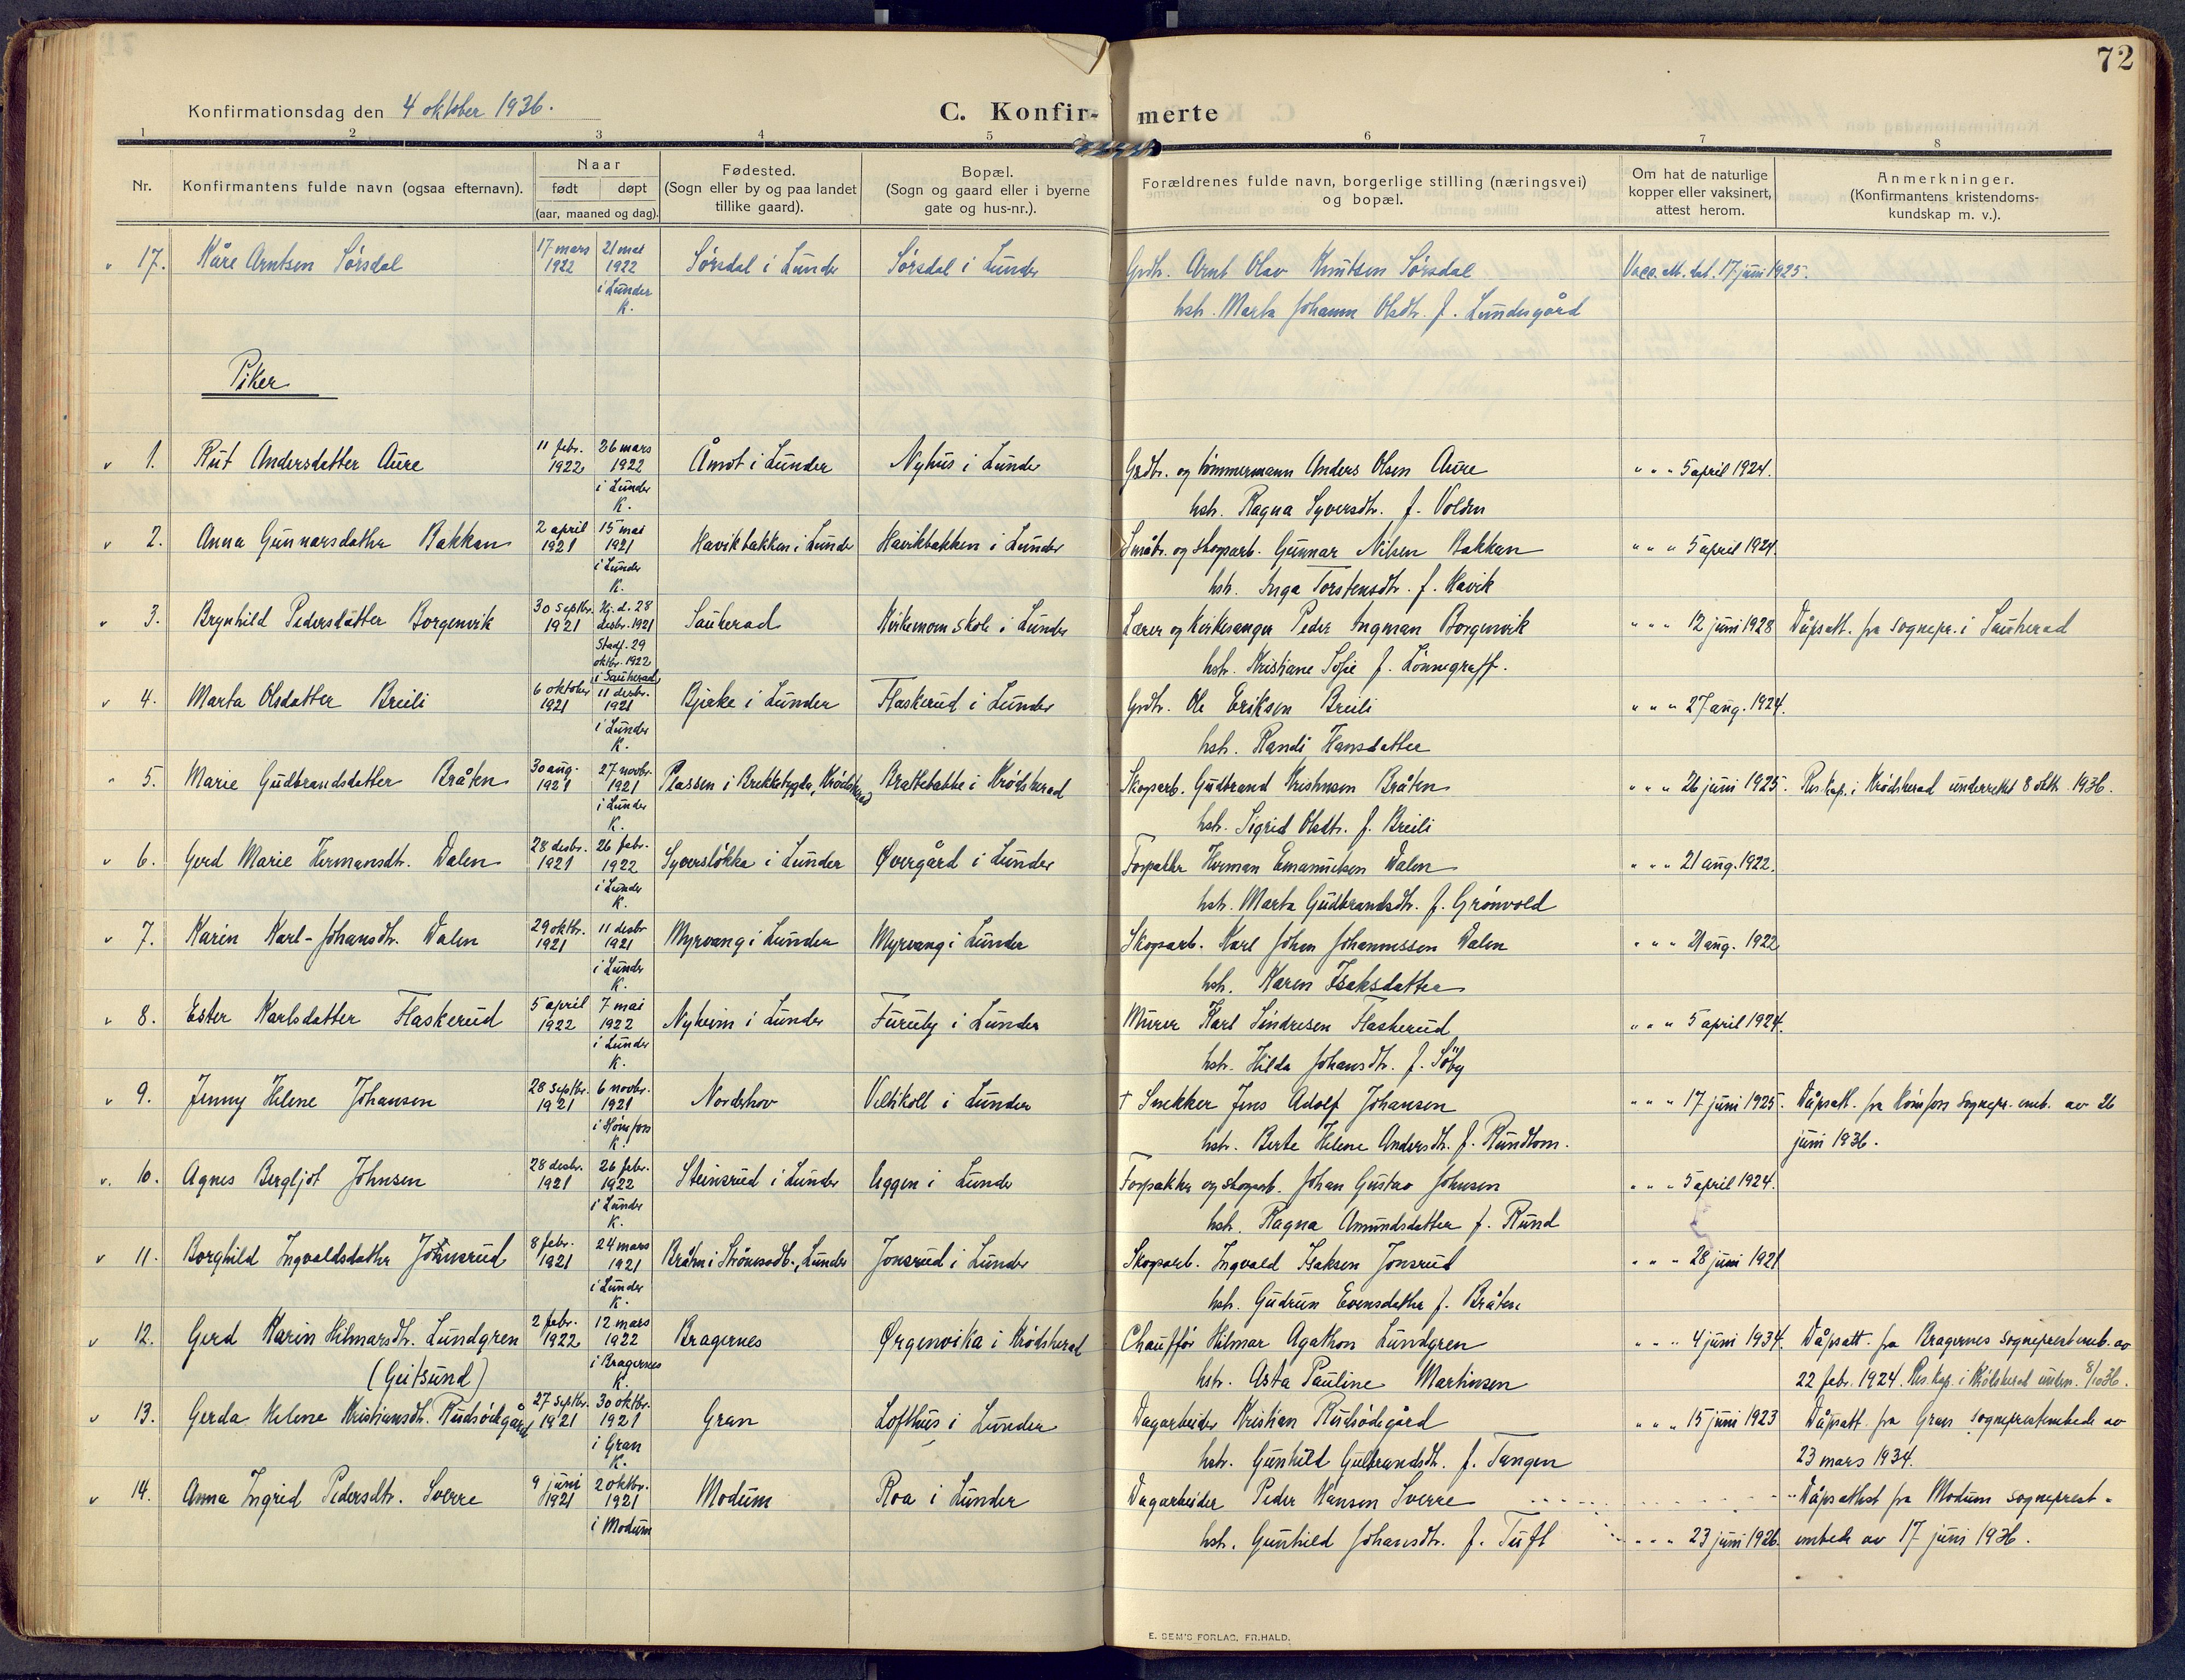 72
Konfirmationsdag den 4 oktober 1936.
C. Konfirmerte
1 2 3 4 5 6 7 8
Nr.
Konfirmantens fulde navn (ogsaa efternavn).
Naar
født døpt
(aar, maaned og dag).
Fødested.
(Sogn eller by og paa landet
tillike gaard).
Bopæl.
(Sogn og gaard eller i byerne
gate og hus-nr.).
Forældrenes fulde navn, borgerlige stilling (næringsvei)
og bopæl.
Om hat de naturlige
kopper eller vaksinert,
attest herom.
Anmerkninger.
(Konfirmantens kristendoms-
kundskap m. v.).
17. Kåre Arntsen Sørsdal 17 mars 1922 21 mai 1922 i Lunder K. Sørsdal i Lunder Sørsdal i Lunder Grdbr. Arnt Olav Knutsen Sørsdal Vacc. att. dat. 17 juni 1925.
hstr. Marta Johanne Olsdtr. f. Lundesgård
Piker
1. Rut Andersdatter Aure 11 febr. 1922 26 mars 1922 i Lunder K. Åmot i Lunder Nyhus i Lunder Grdbr. og tømmermann Anders Olsen Aure " " " 5 april 1924.
hstr. Ragna Syversdtr. f. Volden
2. Anna Gunnarsdatter Bakken 2 april 1921 15 mai 1921 i Lunder K. Havikbakken i Lunder Havikbakken i Lunder Småbr. og skogarb. Gunnar Nilsen Bakken " " " 5 april 1924.
hstr. Inga Torstensdtr. f. Havik
3. Brynhild Pedersdatter Borgenvik 30 septbr. 1921 Hj.d. 28 desbr. 1921 Stadf. 29 oktbr. 1922 i Sauherad Sauherad Kirkemoen skole i Lunder Lærer og kirkesanger Peder Ingman Borgenvik " " " 12 juni 1928 Dåpsatt. fra sognepr. i Sauherad
hstr. Kristiane Sofie f. Lønnegraff.
4. Marta Olsdatter Breili 6 oktober 1921 11 desbr. 1921 i Lunder K. Bjerke i Lunder Flaskerud i Lunder Grdbr. Ole Eriksen Breili " " " 27 aug. 1924.
hstr. Randi Hansdatter
5. Marie Gudbrandsdatter Bråten 30 aug. 1921 27 novbr. 1921 i Lunder K. Plassen i Brekkebygda, Krødsherad Brattebakke i Krødsherad Skogarb. Gudbrand Kristensen Bråten " " " 26 juni 1925. Res. kap. i Krødsherad underrettet 8 oktb. 1936.
hstr. Sigrid Olsdtr. f. Breili
6. Gerd Marie Hermansdtr. Dalen 28 desbr. 1921 26 febr. 1922 i Lunder K. Syversløkka i Lunder Øvergård i Lunder Forpakter Herman Emanuelsen Dalen " " " 21 aug. 1922.
hstr. Marta Gudbrandsdtr. f. Grønvold
7. Karin Karl-Johansdtr. Dalen 29 oktbr. 1921 11 desbr 1921 i Lunder K. Myrvang i Lunder Myrvang i Lunder Skogsarb. Karl Johan Johannessen Dalen " " " 21 aug. 1922
hstr. Karen Isaksdatter
8. Ester Karlsdatter Flaskerud 5 april 1922 7 mai 1922 i Lunder K. Nyheim i Lunder Furuby i Lunder Murer Karl Sindresen Flaskerud " " " 5 april 1924.
hstr. Hilda Johansdtr. f. Søby
9. Jenny Helene Johansen 28 septbr. 1921 6 novbr. 1921 i Hønefoss K. Norderhov Veltikoll i Lunder † Snekker Jens Adolf Johansen " " " 17 juni 1925. Dåpsatt. fra Hønefoss sognepr. emb. av 26
hstr. Berte Helene Andersdtr. f. Rundtom. juni 1936.
10. Agnes Bergljot Johnsen 28 desbr. 1921 26 febr. 1922 i Lunder K. Steinsrud i Lunder Uggen i Lunder Forpakter og skogarb. Johan Gustav Johnsen " " " 5 april 1924.
hstr. Ragna Amundsdatter f. Rund
11. Borghild Ingvaldsdatter Jonsrud 8 febr. 1921 24 mars 1921 i Lunder K. Bråten i Strømsodb., Lunder Jonsrud i Lunder Skogsarb. Ingvald Isaksen Jonsrud " " " 28 juni 1921
hstr. Gudrun Evensdatter f. Bråten
12. Gerd Karin Hilmarsdtr. Lundgren 2 febr. 1922 12 mars 1922 i Bragernes K. Bragernes Ørgenvika i Krødsherad Chauffør Hilmar Agathon Lundgren " " " 4 juni 1934. Dåpsatt. fra Bragernes sogneprestemb. av
(Geitsund) hstr. Asta Pauline Martinsen 22 febr. 1924. Res. kap. i Krødsherad underr. 8/10 36.
13. Gerda Helene Kristiansdtr. Rudsødegård 27 septbr. 1921 30 oktbr. 1921 i Gran K. Gran Lofthus i Lunder Dagarbeider Kristian Rudsødegård " " " 15 juni 1923 Dåpsatt. fra Gran sogneprestembede av
hstr. Gunhild Gulbrandsdtr. f. Tangen 23 mars 1934.
14. Anna Ingrid Pedersdtr. Sverre 9 juni 1921 2 oktbr. 1921 i Modum Modum Roa i Lunder Dagarbeider Peder Hansen Sverre Dåpsattest fra Modum sogneprest-
hstr. Gunhild Johansdtr. f. Tuft " " " 23 juni 1926. embede av 17 juni 1936.
E. SEM'S FORLAG, FR.HALD.